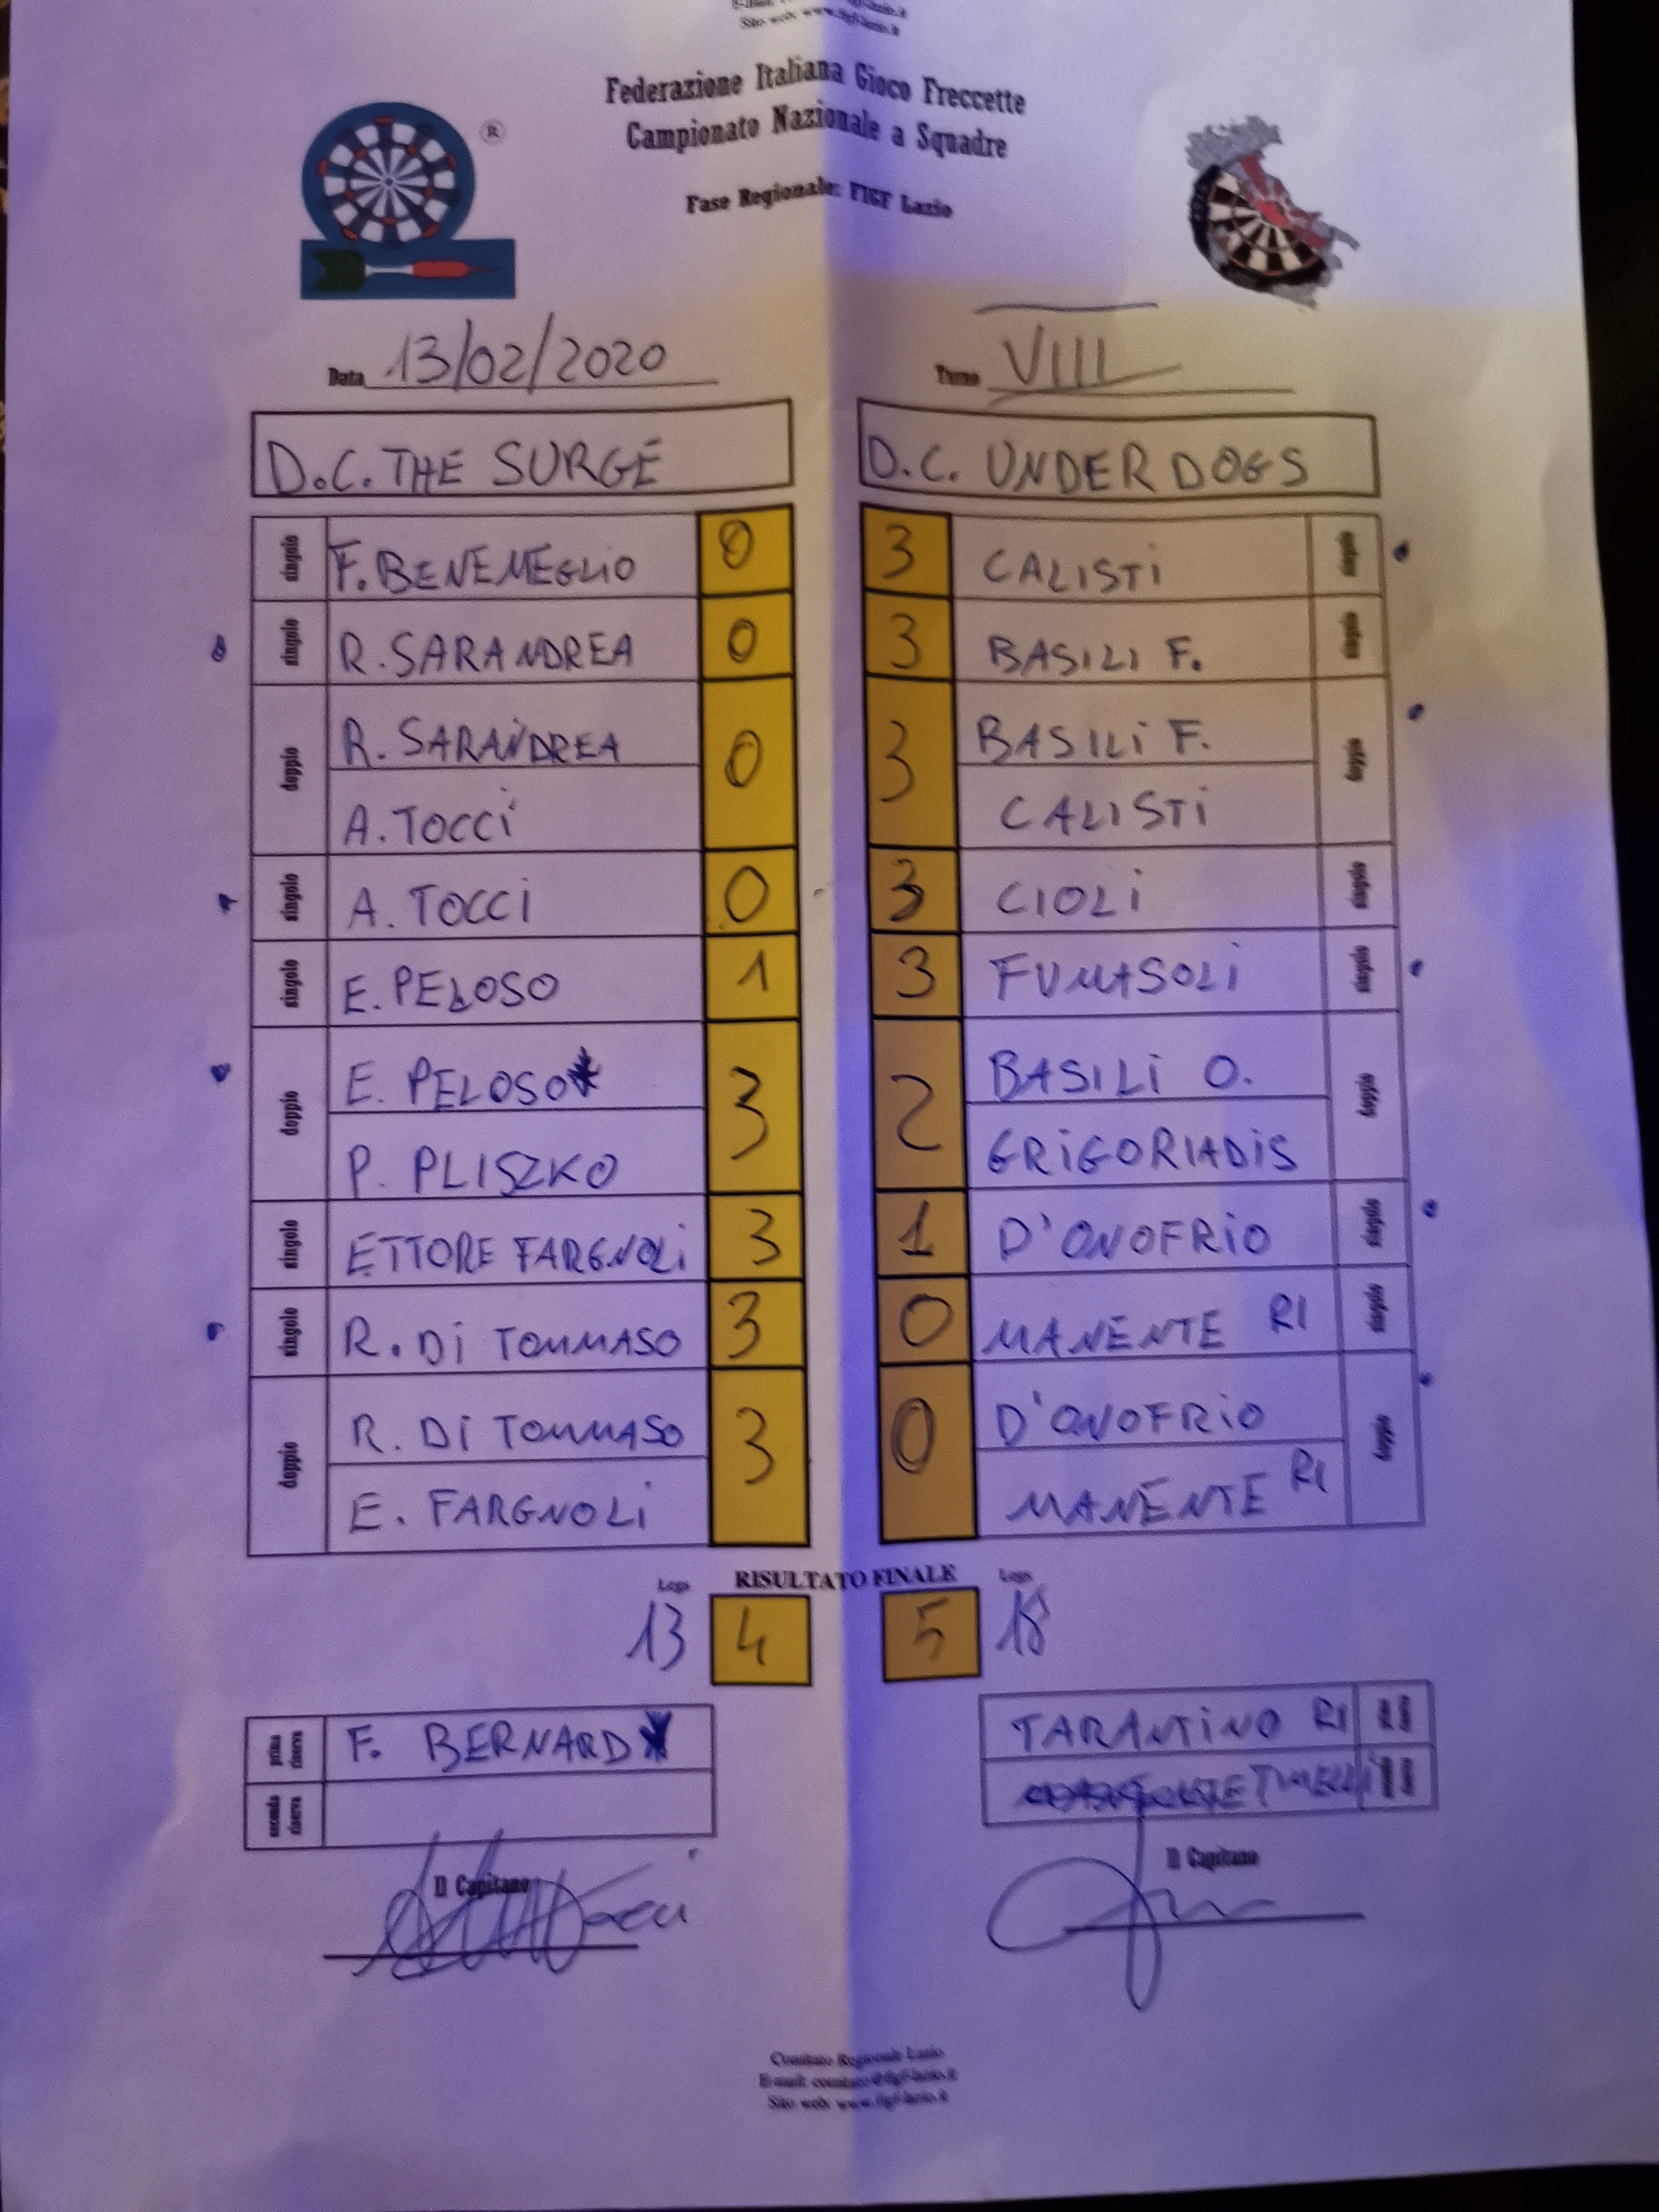 Sito web: www.figf-lazio.it
Federazione Italiana Gioco Freccette
Campionato Nazionale a Squadre
Fase Regionale: FIGF Lazio
®
Data 13/02/2020
Turno VIII
D.C. THE SURGE
D.C. UNDER DOGS
singolo F. BENEMEGLIO 0 3 CALISTI singolo
singolo R. SARANDREA 0 3 BASILI F. singolo
doppio R. SARANDREA 0 3 BASILI F. doppio
A. TOCCI CALISTI
singolo A. TOCCI 0 3 CIOLI singolo
singolo E. PELOSO 1 3 FUMASOLI singolo
doppio E. PELOSO 3 2 BASILI O. doppio
P. PLISZKO GRIGORIADIS
singolo ETTORE FARGNOLI 3 1 D'ONOFRIO singolo
singolo R. DI TOMMASO 3 0 MANENTE RI singolo
doppio R. DI TOMMASO 3 0 D'ONOFRIO doppio
E. FARGNOLI MANENTE RI
Legs RISULTATO FINALE Legs
13 4 5 18
prima riserva F. BERNARD
TARANTINO RI
seconda riserva
Il Capitano
Il Capitano
Comitato Regionale Lazio
E-mail: comitato@figf-lazio.it
Sito web: www.figf-lazio.it